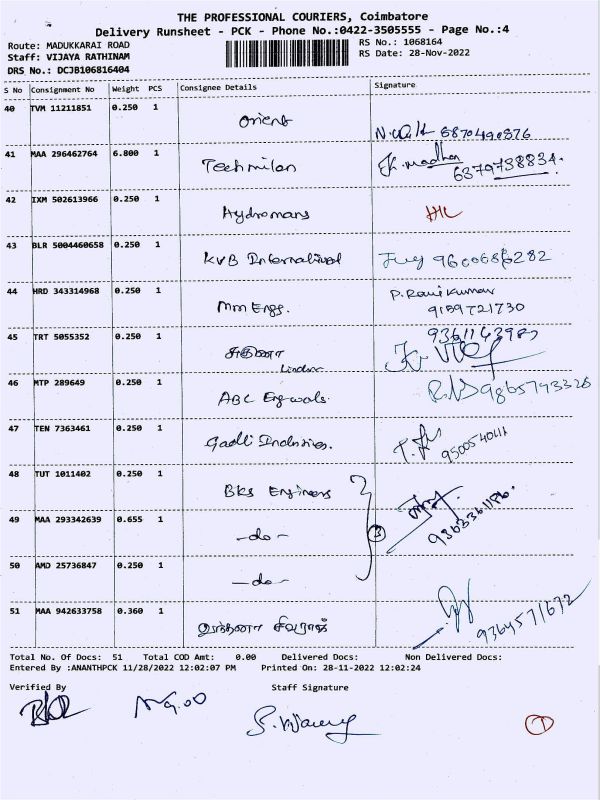 THE PROFESSIONAL COURIERS, Coimbatore
Delivery Runsheet - PCK - Phone No.:0422-3505555 - Page No.:4
Route: MADUKKARAI ROAD RS No.: 1068164
Staff: VIJAYA RATHINAM RS Date: 28-Nov-2022
DRS No.: DCJB106816404
S No Consignment No Weight PCS Consignee Details Signature
40 TVM 11211851 0.250 1 Orient
41 MAA 296462764 6.800 1 Techmilan 6379738834.
42 IXM 502613966 0.250 1 Hydromans
43 BLR 5004460658 0.250 1 KVB International
44 HRD 343314968 0.250 1 Mm Engs. P. Ravikumar
9159721730
45 TRT 5055352 0.250 1
46 MTP 289649 0.250 1 ABC 9865743326
47 TEN 7363461 0.250 1 Industries. 9500540111
48 TUT 1011402 0.250 1 BKS Engineers
49 MAA 293342639 0.655 1 -do- 3 9363361186.
50 AMD 25736847 0.250 1 -do-
51 MAA 942633758 0.360 1 வந்தனா சிவராஜ் 9364571672
Total No. Of Docs: 51 Total COD Amt: 0.00 Delivered Docs: Non Delivered Docs:
Entered By :ANANTHPCK 11/28/2022 12:02:07 PM Printed On: 28-11-2022 12:02:24
Verified By Staff Signature